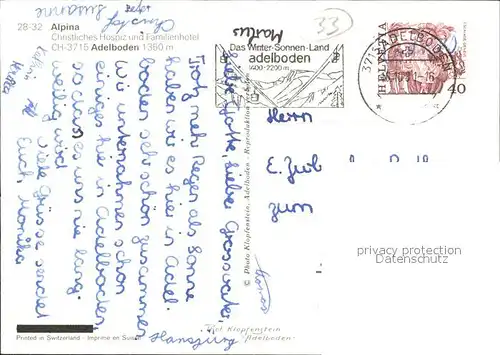 28-32 Alpina
Christliches Hospiz und Familienhotel
CH-3715 Adelboden 1360 m
33
Das Winter-Sonnen-Land
adelboden
1400-2200 m
3715 ADELBODEN
HELVETIA
40
Liebe Gotte, lieber Grossvater,
Trotz mehr Regen als Sonne
haben wir es hier in Adel-
boden sehr schön zusammen.
Wir unternahmen schon
einiges hier in Adelboden,
so dass es uns nie lang-
weilig wird.
Viele Grüsse sendet
Euch, Monika
Hansjürg
Thomas
Markus
Christof
Susanne
Herrn
E. Zub
zum
privacy protection
Datenschutz
© Photo Klopfenstein, Adelboden - Reproduktion verboten
Klopfenstein
Adelboden
Printed in Switzerland - Imprimé en Suisse